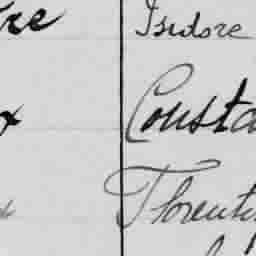 re Isidore
x Consta
Florenti